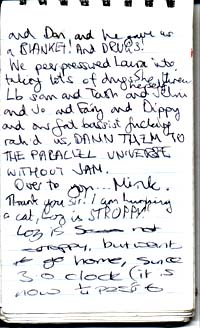 and Dan, and he gave us
a BLANKET! And DRUGS!
We peerpressured Laura into
taking lots of drugs. She threw
herself
Lb Sam and Tash and John
and Jo and Fairy and Dippy
and our fat bassist
us, DAMN THEM TO
THE PARALLEL UNIVERSE
WITHOUT JAM.
Over to Mink.
Thank you sir! I am humping
a cat, Loz is STROPPY!
Loz is not
stroppy, but want
go home, since
3 o clock (it is
now ½ past 6